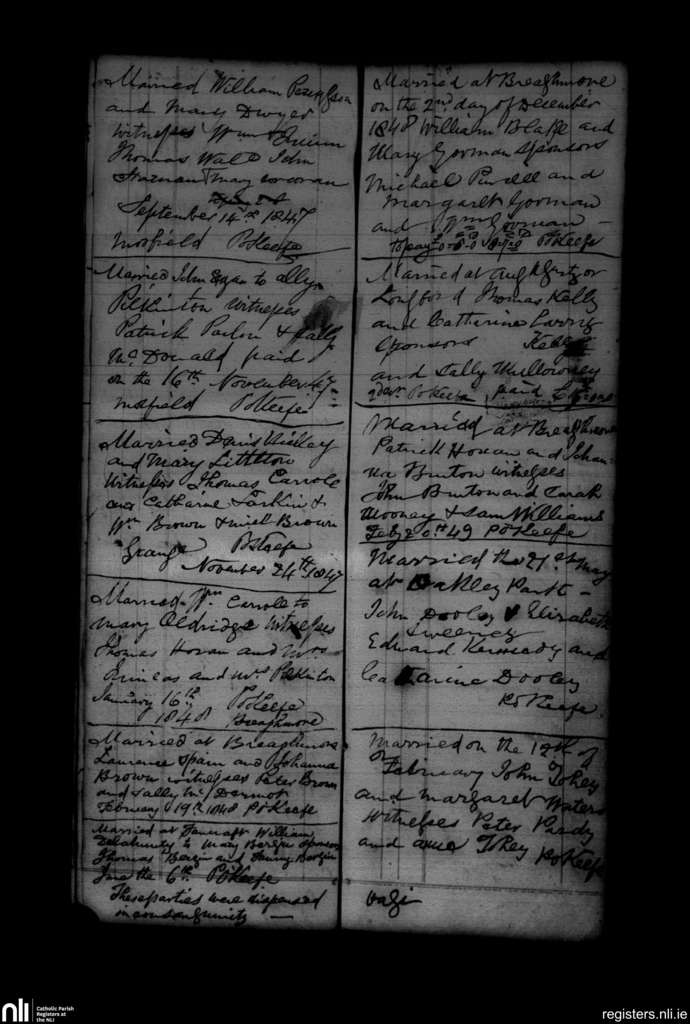 Married William
and Mary Dwyer
witnesses Wm Quinn
Thomas Wall John
May Corcoran
September 14th 1847
Mosfield POKeefe
Married John Egan to ally
Pilkinton witnesses
Patrick & Sally
Mc Donald paid
on the 16th November 47
Mosfield POKeefe
Married Denis Hickey
and Mary Littleton
Witnesses Thomas Carrole
and Catharine Larkin &
Wm Brown & Brown
Grange POKeefe
November 24th 1847
Married Wm Carrole to
Mary Oldridge Witnesses
Thomas Horan and Mrs
and Mrs Pilkinton
January 16th POKeefe
1848 Breaghmore
Married at Breaghmore
Laurence Spain and Johanna
Brown witnesses Peter Brown
and Sally Mc Dermot
February 19th 1848 POKeefe
Married at William
Delahunty to Mary Bergin Sponsors
Thomas Bergin and Bergin
June the 6th POKeefe
These parties were dispensed
in consanguinity
Married at Breaghmore
on the 2nd day of December
1848 William Blake and
Mary Gorman sponsors
Michael Purcell and
Margaret Gorman
and Gorman
POKeefe
Married at
Longford Thomas Kelly
and Catherine
Sponsors
and Sally Mullowney
POKeefe paid
Married at Breaghmore
Patrick Horan and Johan
na Bruton witnesses
John Bruton and Sarah
Mooney & Sam Williams
Feby 20th 49 POKeefe
Married the 21st May
at Oakley Park
John Dooley & Elizabeth
Sweeney
Edward Kennedy and
Catharine Dooley
POKeefe
Married on the 19th of
February John Tohey
and Margaret Waters
Witnesses Peter Purdy
and Tohey POKeefe
nli
Catholic Parish
Registers at
the NLI
registers.nli.ie